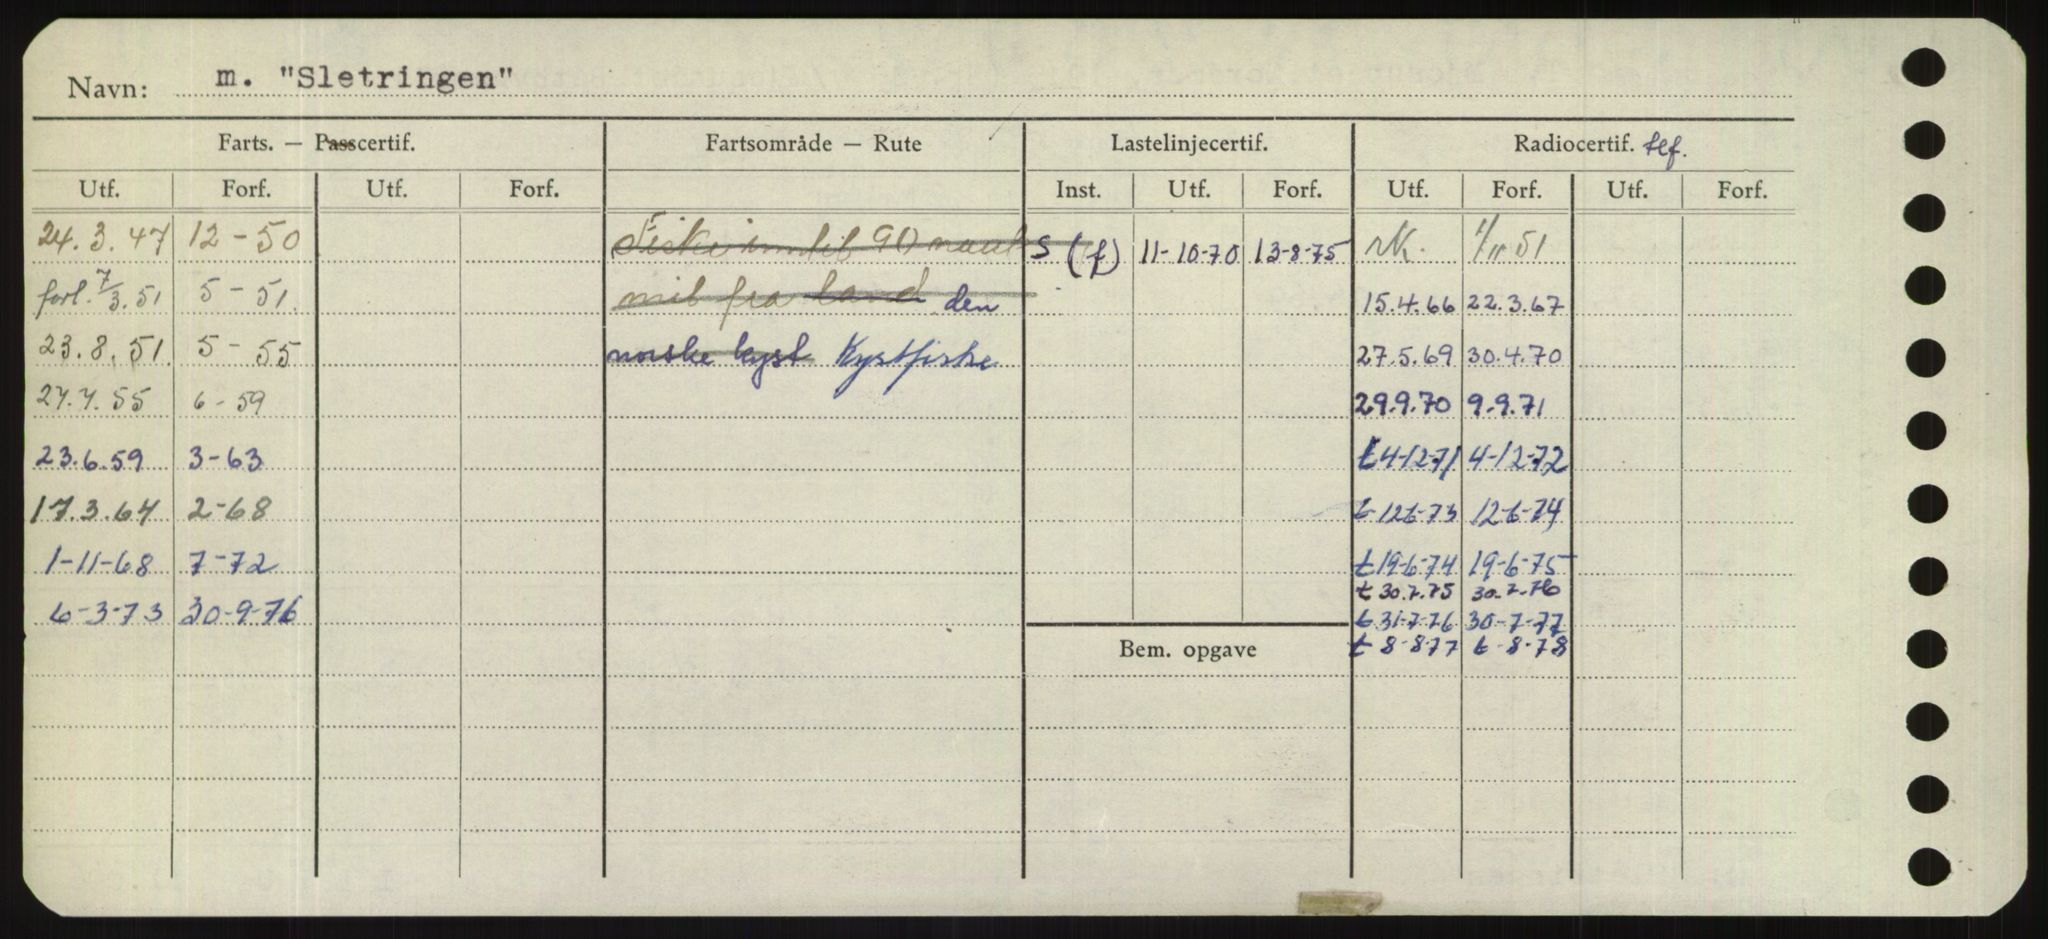 Navn: m. "Sletringen"
Farts. — Passcertif. Fartsområde — Rute Lastelinjecertif. Radiocertif. tlf.
Utf. Forf. Utf. Forf. Inst. Utf. Forf. Utf. Forf. Utf. Forf.
24.3.47 12-50 Fiske inntil 90 naut S (f) 11-10-70 13-8-75 rk. 1/11 51
forl. 7/3.51 5-51. mil fra land den 15.4.66 22.3.67
23.8.51. 5-55 norske kyst Kystfiske 27.5.69 30.4.70
27.7.55 6-59 29.9.70 9.9.71
23.6.59 3-63 t 4-12-71 4-12-72
17.3.64 2-68 t-12-6-73 12-6-74
1-11-68 7-72 t 19-6-74 19-6-75
t 30.7.75 30.7.76
6-3-73 30-9-76 t 31-7-76 30-7-77
Bem. opgave t 8-8-77 6-8-78